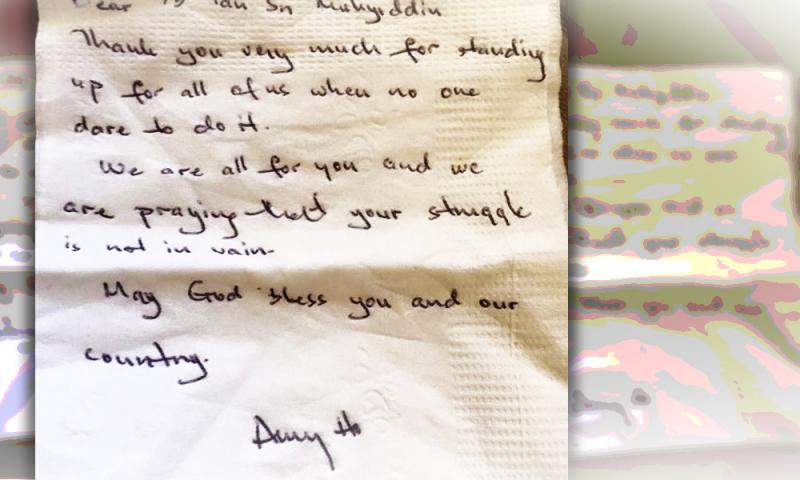 Dear Tan Sri Muhyiddin
Thank you very much for standing
up for all of us when no one
dare to do it.
We are all for you and we
are praying that your struggle
is not in vain
May God bless you and our
country.
Amy Ho